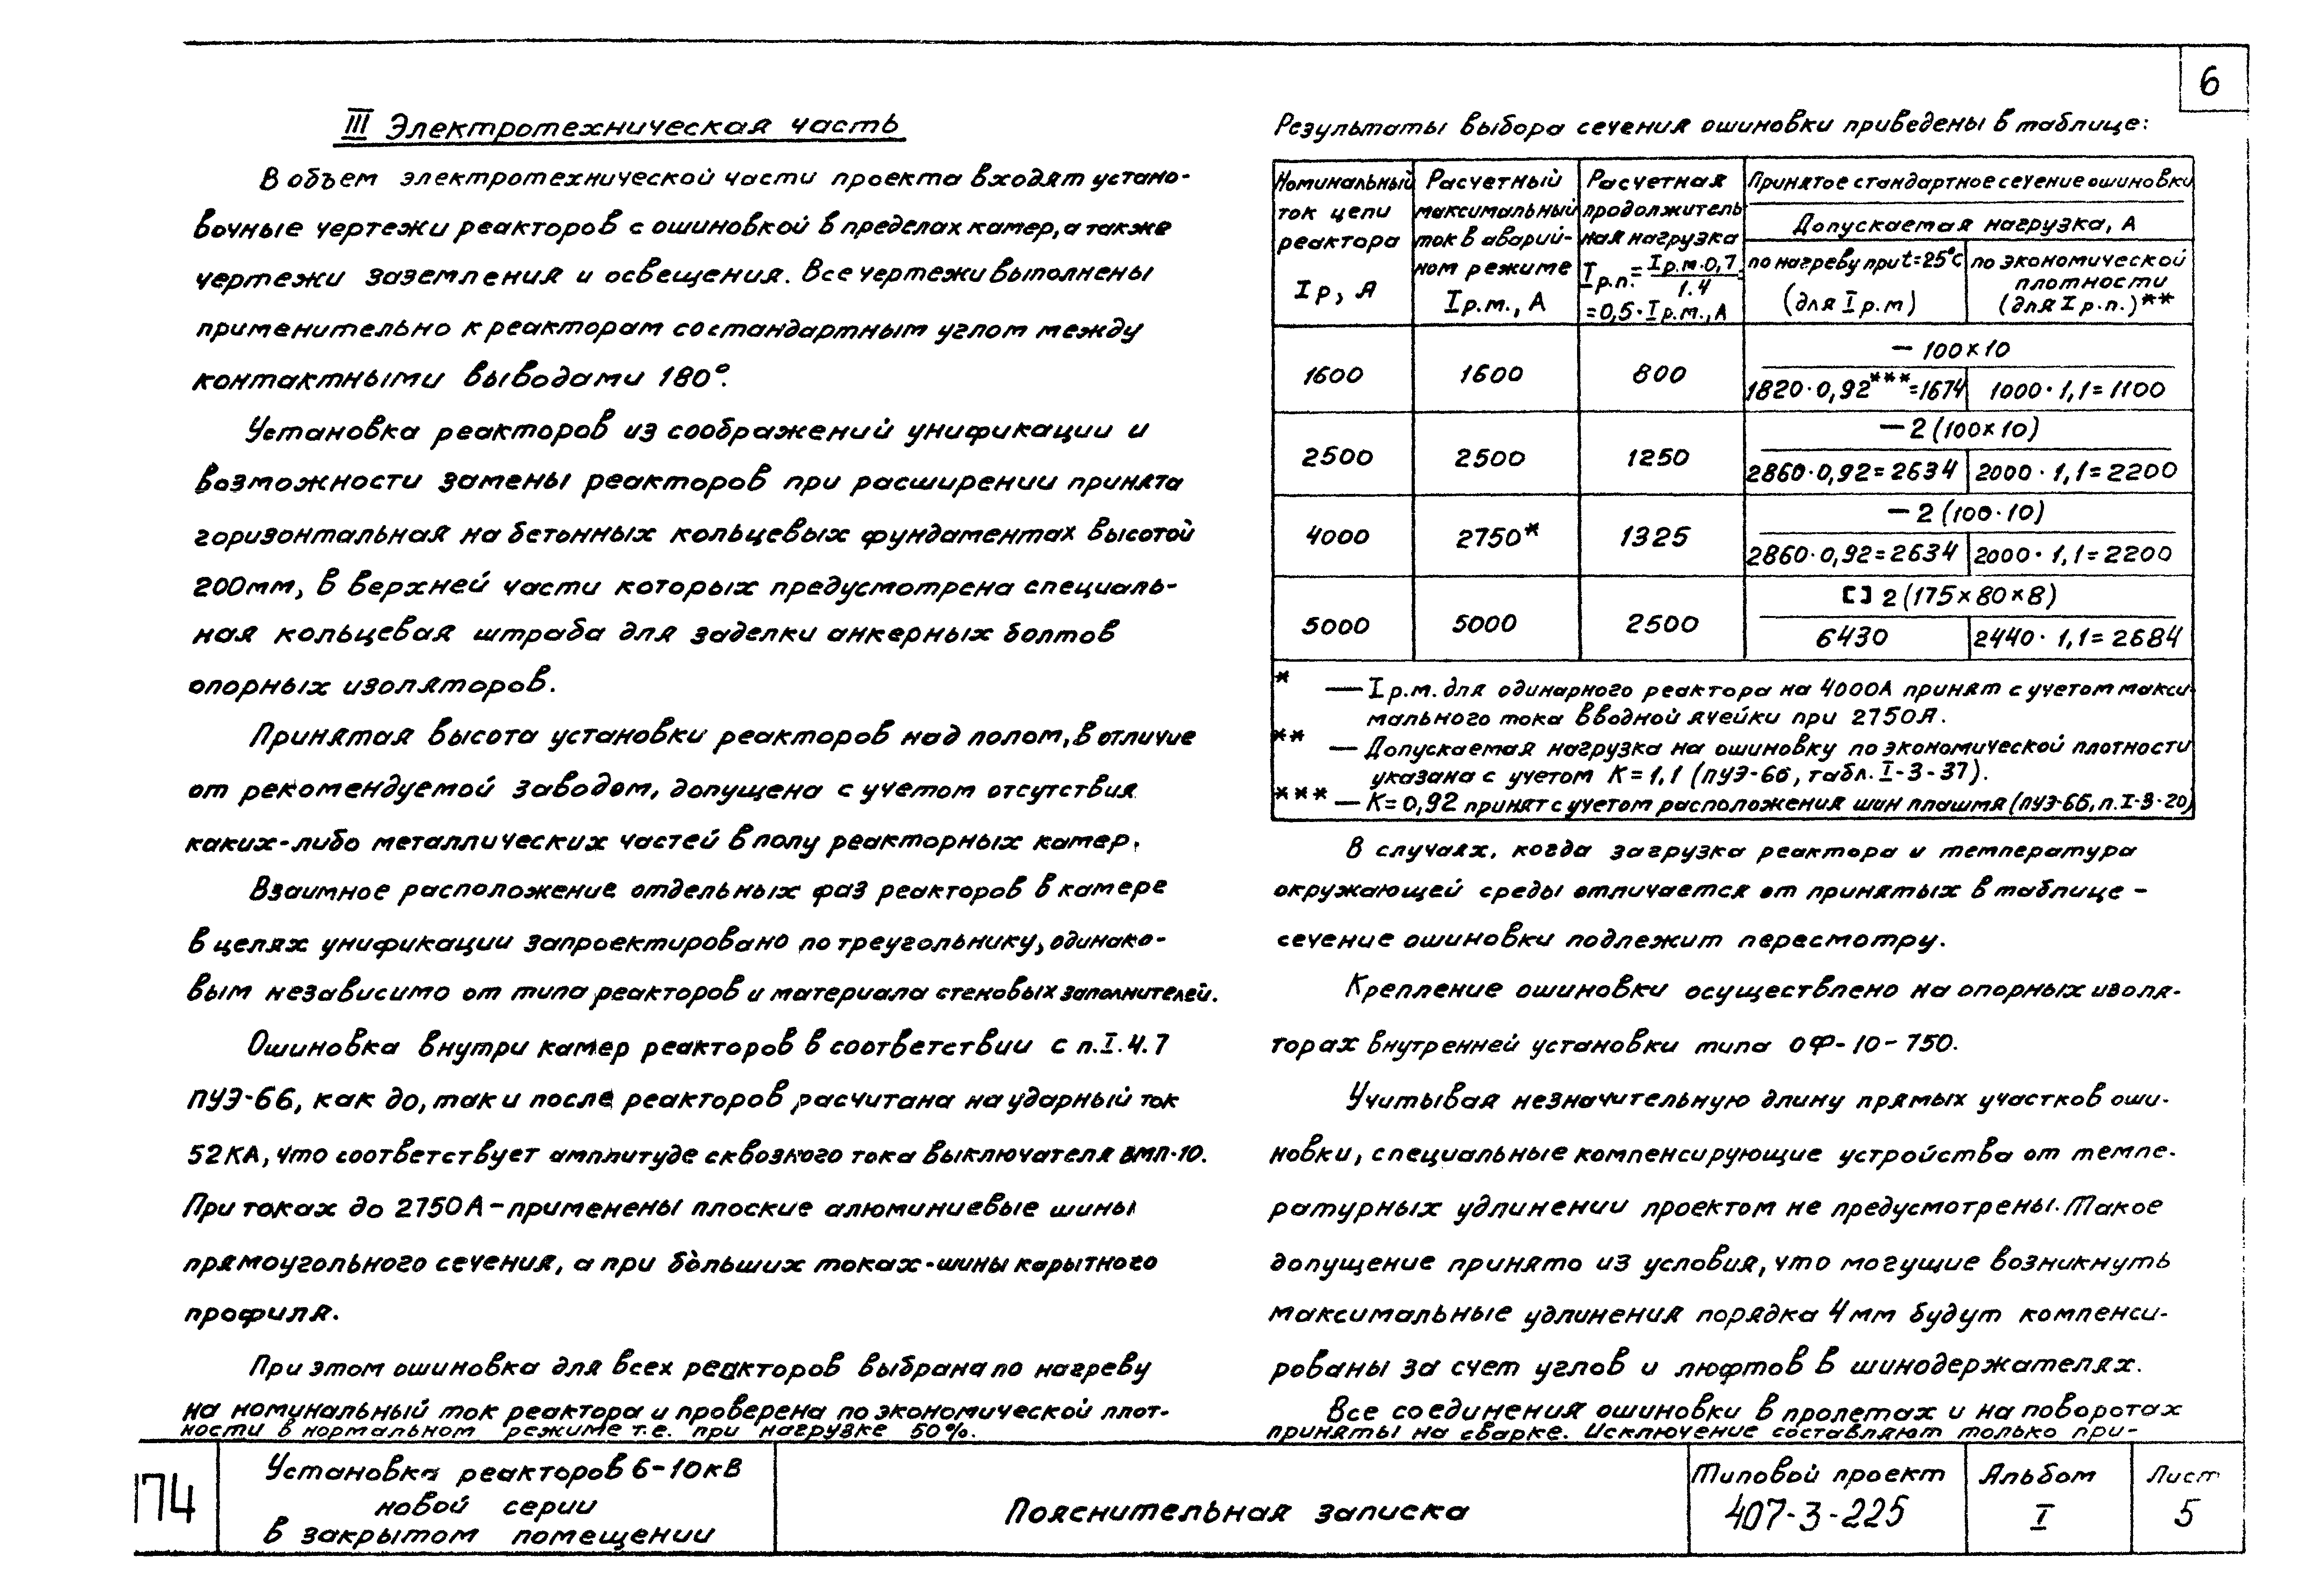 6
III Электротехническая часть
В объем электротехнической части проекта входят устано-
вочные чертежи реакторов с ошиновкой в пределах камер, а также
чертежи заземления и освещения. Все чертежи выполнены
применительно к реакторам со стандартным углом между
контактными выводами 180°.
Установка реакторов из соображений унификации и
возможности замены реакторов при расширении принята
горизонтальная на бетонных кольцевых фундаментах высотой
200мм, в верхней части которых предусмотрена специаль-
ная кольцевая штраба для заделки анкерных болтов
опорных изоляторов.
Принятая высота установки реакторов над полом, в отличие
от рекомендуемой заводом, допущена с учетом отсутствия
каких-либо металлических частей в полу реакторных камер.
Взаимное расположение отдельных фаз реакторов в камере
в целях унификации запроектировано по треугольнику, одинако-
вым независимо от типа реакторов и материала стеновых заполнителей.
Ошиновка внутри камер реакторов в соответствии с п.I.4.7
ПУЭ-66, как до, так и после реакторов расчитана на ударный ток
52КА, что соответствует амплитуде сквозного тока выключателя ВМП-10.
При токах до 2750А - применены плоские алюминиевые шины
прямоугольного сечения, а при больших токах - шины карытного
профиля.
При этом ошиновка для всех реакторов выбрана по нагреву
на номунальный ток реактора и проверена по экономической плот-
ности в нормальном режиме т.е. при нагрузке 50%.
Результаты выбора сечения ошиновки приведены в таблице:
Номинальный ток цепи реактора Iр, А
Расчетный максимальный ток в аварий-ном режиме Iр.м., А
Расчетная продолжитель ная нагрузка Iр.п. = Iр.м.0,7 / 1.4 = =0,5·Iр.м., А
Принятое стандартное сечение ошиновки
Допускаемая нагрузка, А
по нагреву при t=25°С (для Iр.м)
по экономической плотности (для Iр.п.)**
— 100×10
1600 1600 800 1820·0,92***=1674 1000·1,1=1100
— 2 (100×10)
2500 2500 1250 2860·0,92=2634 2000·1,1=2200
— 2 (100·10)
4000 2750* 1325 2860·0,92=2634 2000·1,1=2200
[] 2 (175×80×8)
5000 5000 2500 6430 2440·1,1=2684
* — Iр.м. для одинарного реактора на 4000А принят с учетом макси
мального тока вводной ячейки при 2750А.
** — Допускаемая нагрузка на ошиновку по экономической плотности
указана с учетом К=1,1 (ПУЭ-66, табл.I-3-37).
*** — К=0,92 принят с учетом расположения шин плашмя (ПУЭ-66, п.I-3-20)
В случаях, когда загрузка реактора и температура
окружающей среды отличается от принятых в таблице -
сечение ошиновки подлежит пересмотру.
Крепление ошиновки осуществлено на опорных изоля-
торах внутренней установки типа ОФ-10-750.
Учитывая незначительную длину прямых участков оши-
новки, специальные компенсирующие устройства от темпе-
ратурных удлинении проектом не предусмотрены. Такое
допущение принято из условия, что могущие возникнуть
максимальные удлинения порядка 4мм будут компенси-
рованы за счет углов и люфтов в шинодержателях.
Все соединения ошиновки в пролетах и на поворотах
приняты на сварке. Исключение составляют только при-
174
Установка реакторов 6-10кВ
новой серии
в закрытом помещении
Пояснительная записка
Типовой проект
407-3-225
Альбом
I
Лист
5